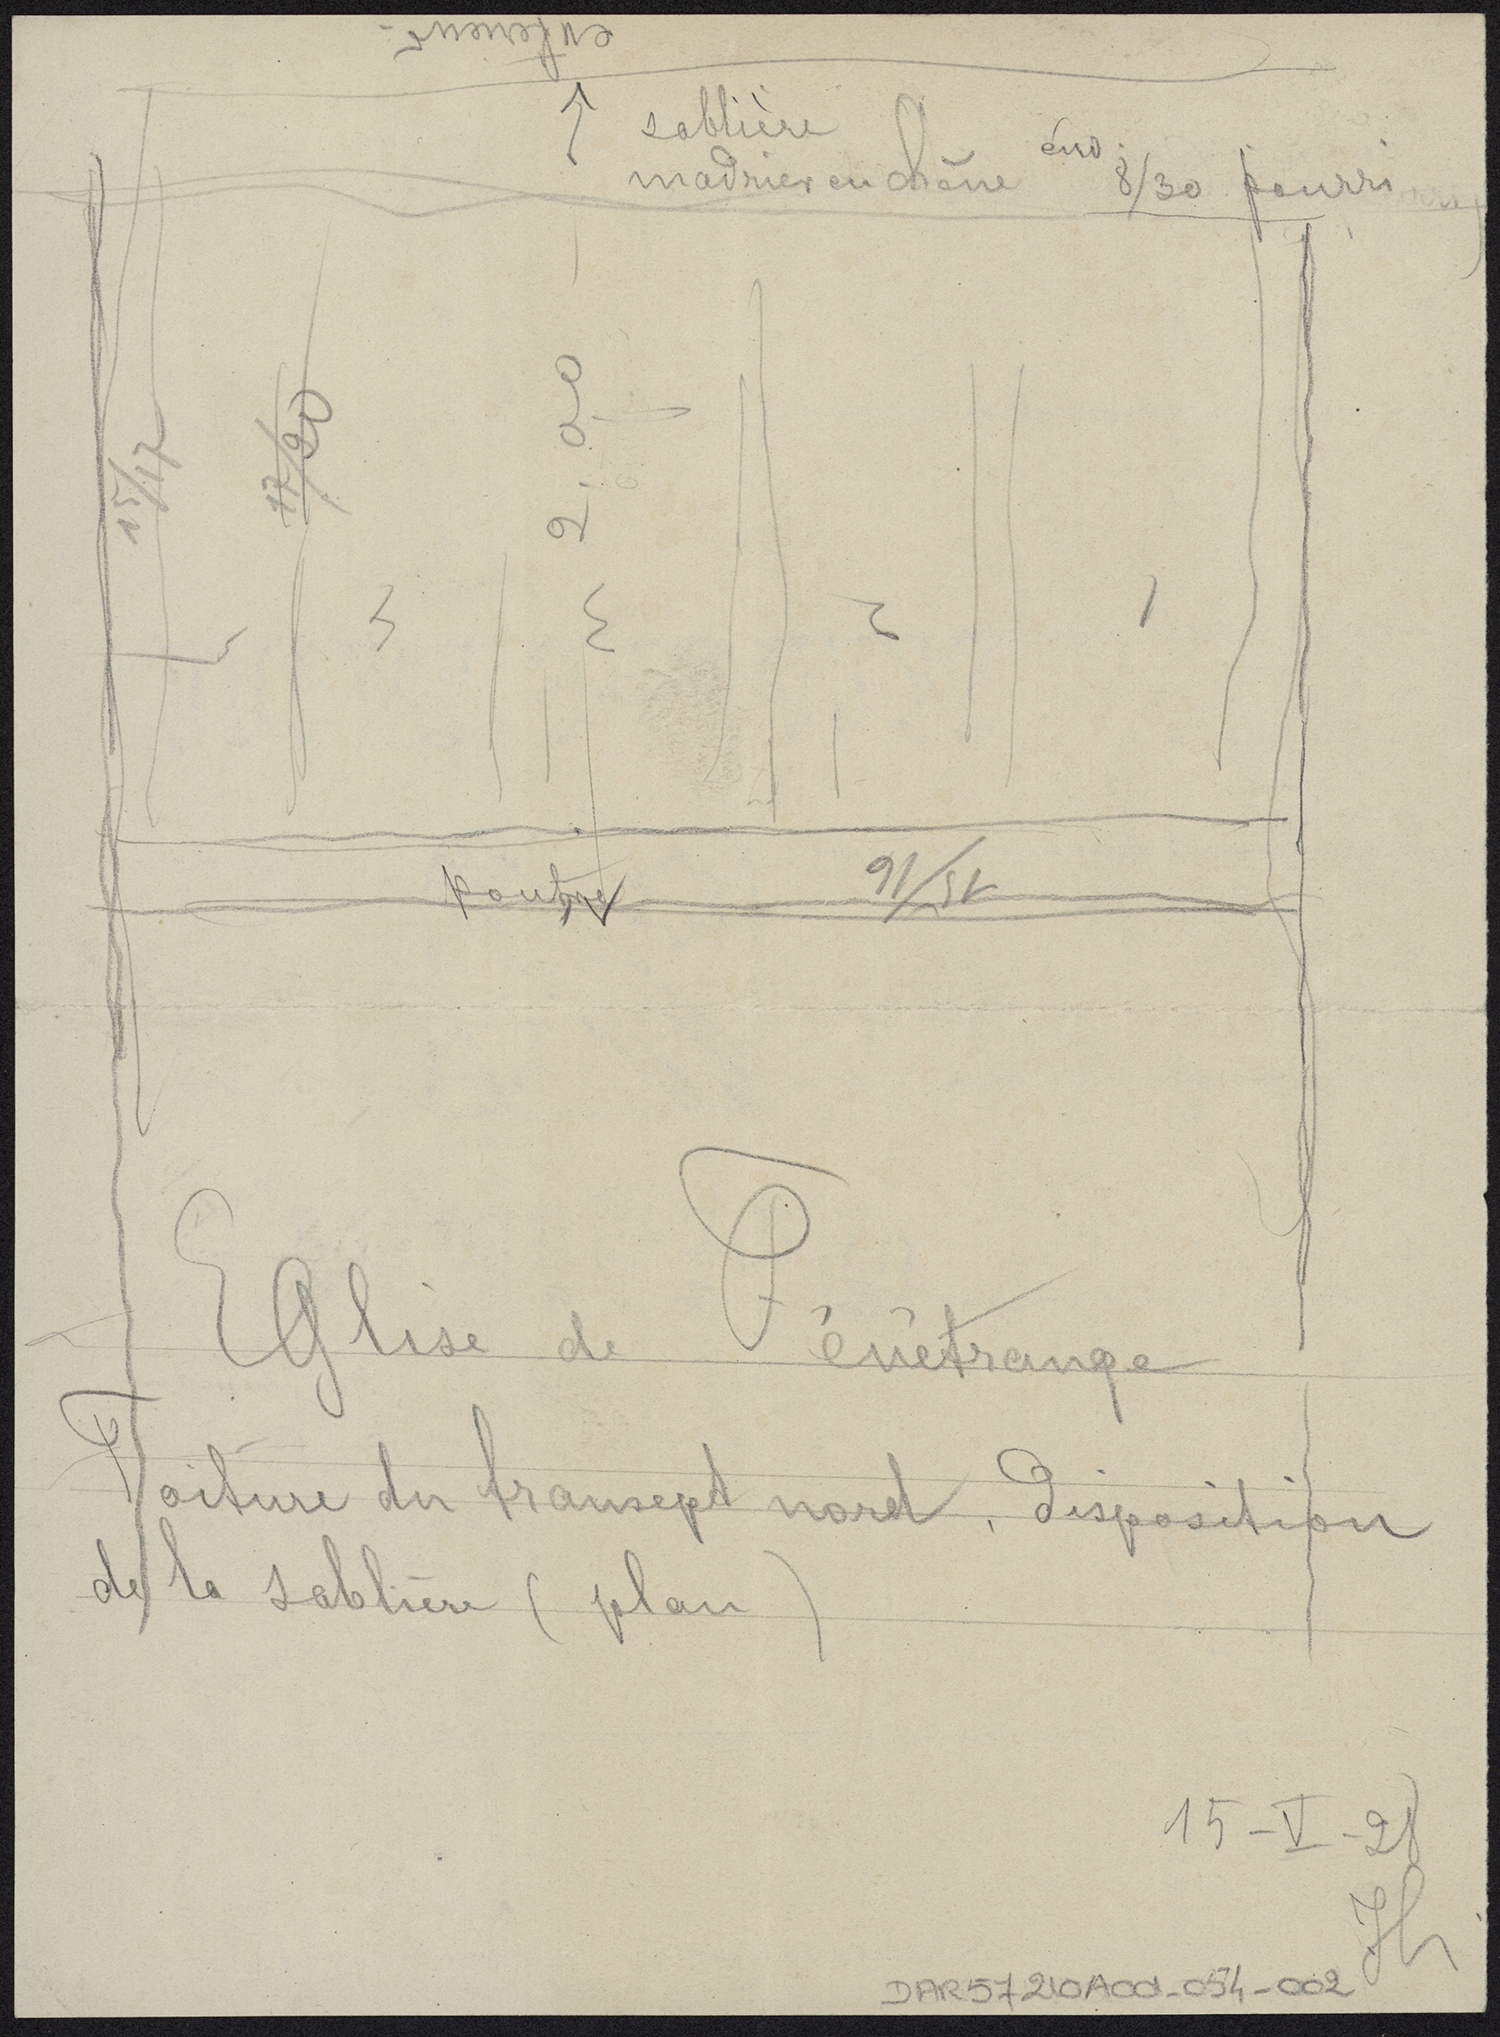 exterieur
sablière
madrier en chêne env. 8/30 pourri
15/17
17/20
2,00
4
3
2
1
poutre
15/16
Eglise de Fénétrange
Toiture du transept nord, Disposition
de la sablière (plan)
15-V-28
DAR57210A001-054-002